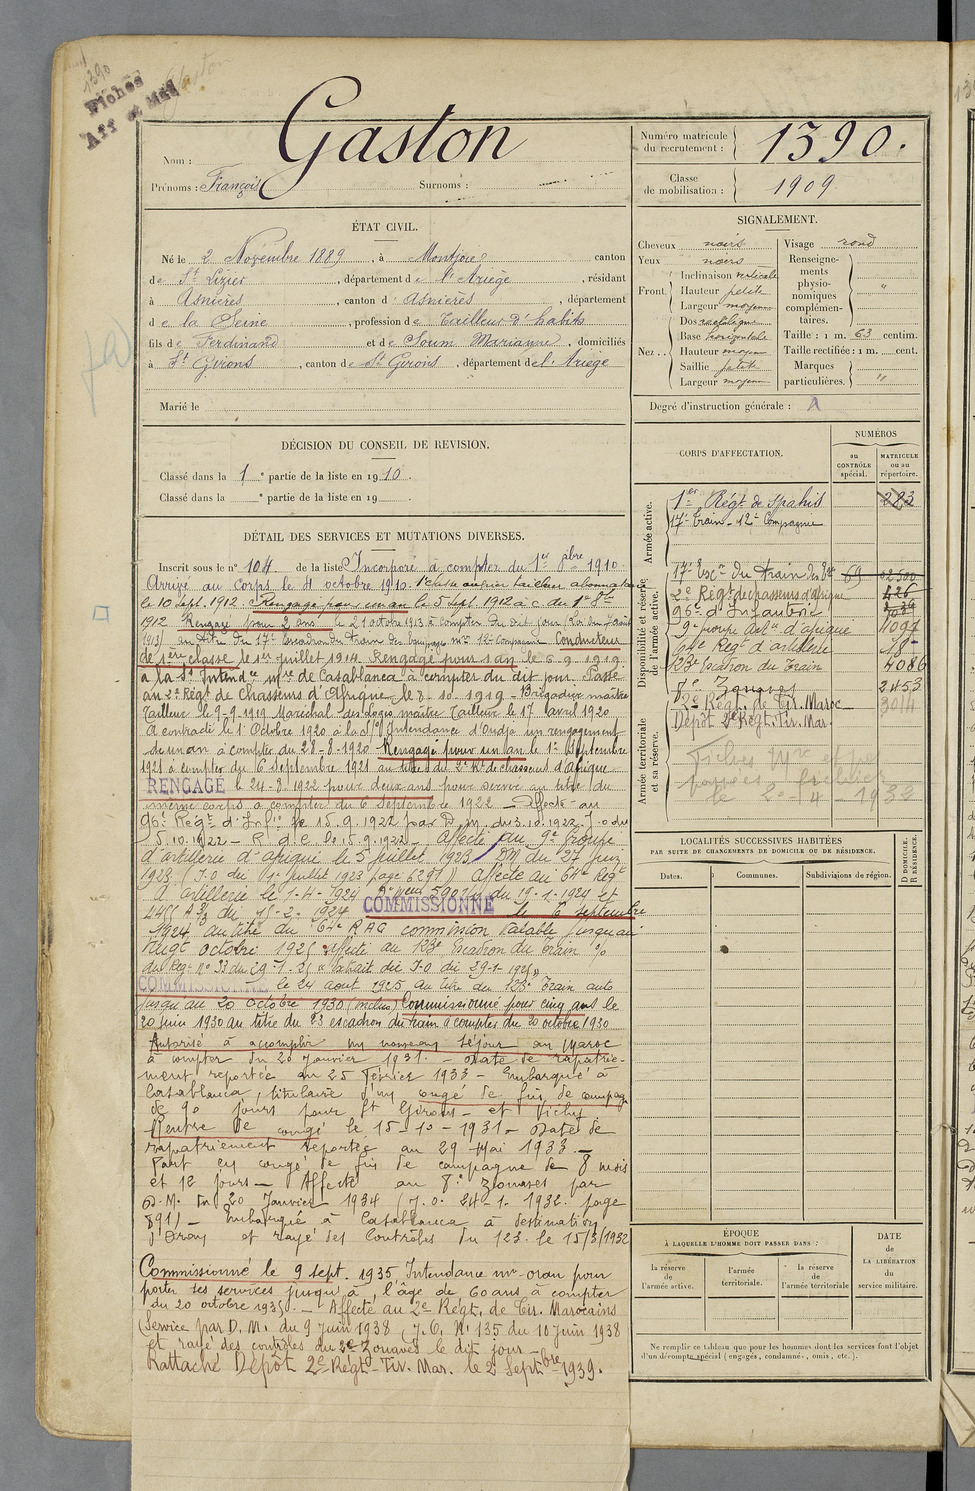 1390
Gaston
Fiches
Aff et Méd
Nom : Gaston
Prénoms : François Surnoms :
Numéro matricule du recrutement : 1390.
Classe de mobilisation : 1909
ÉTAT CIVIL.
Né le 2 Novembre 1889, à Montjoie canton
de St Lizier, département de l'Ariège, résidant
à Asnières, canton d'Asnières, département
de la Seine, profession de Tailleur d'habits
fils de Ferdinand et de Soum Marianne, domiciliés
à St Girons, canton de St Girons, département de l'Ariège
Marié le
SIGNALEMENT.
Cheveux noirs
Yeux noirs
Front. Inclinaison verticale
Hauteur petite
Largeur moyenne
Nez.. Dos rectiligne
Base horizontale
Hauteur moyen
Saillie petite
Largeur moyen
Visage rond
Renseignements physionomiques complémentaires. "
Taille : 1 m. 63 centim.
Taille rectifiée : 1 m. cent.
Marques particulières. "
Degré d'instruction générale : A
DÉCISION DU CONSEIL DE REVISION.
Classé dans la 1e partie de la liste en 1910.
Classé dans la e partie de la liste en 19 .
CORPS D'AFFECTATION.
NUMÉROS
au CONTRÔLE spécial.
MATRICULE ou au répertoire.
Armée active.
1er Régt de Spahis 283
17e Train - 12e Compagnie
Disponibilité et réserve de l'armée active.
17e Escon du Train des Eqges 69 02500
2e Régt de chasseurs d'afrique 426
96e d'Infanterie
9e groupe Art d'afrique 1097
64e Regt d'artillerie 18
123e Escadron du Train 4086
Armée territoriale et sa réserve.
8e Zouaves 2453
2e Régt de Tir. Maroc 3014
Dépôt 2e Régt. Tir. Mar.
DÉTAIL DES SERVICES ET MUTATIONS DIVERSES.
Inscrit sous le n° 104 de la liste Incorporé à compter du 1er 8bre 1910.
Arrivé au Corps le 4 octobre 1910. 1e classe ouvrier tailleur
le 10 Sept. 1912. Rengagé pour un an le 5 Sept 1912 à c. du 1er 8bre
1912 Rengagé pour 2 ans le 21 octobre 1913 à compter du dit jour
1913) au titre du 17e Escadron du Train des Equipages mres 12e Compagnie Conducteur
de 1ère classe le 1er juillet 1914. Rengagé pour 1 an le 6.9.1919
à la St Intendce mre de Casablanca à compter du dit jour. Passé
au 2e Régt de chasseurs d'Afrique le 7-10-1919 - Brigadier maître
Tailleur le 9-9-1919 Maréchal des Logis maître Tailleur le 17 avril 1920
A contracté le 1er Octobre 1920 à la s/Intendance d'Oudja un rengagement
de un an à compter du 28-8-1920 Rengagé pour un an le 1er Septembre
1921 à compter du 6 Septembre 1921 au titre du 2e Rt de chasseurs d'Afrique
RENGAGÉ le 24-8.1922 pour deux ans pour servir au titre du
même corps à compter du 6 Septembre 1922 - Affecté au
96e Régt d'Infie le 15.9.1922 par D.M. du 3.10.1922 J.O du
5.10.1922 - R d c le 15.9.1922 - Affecté au 9e Groupe
d'artillerie d'afrique le 5 juillet 1923 DM du 27 juin
1923 (J.O du 1er juillet 1923 page 6291) Affecté au 64e Régt
d'Artillerie le 1-4-1924 du 19-1-1924 et
du 15-2-1924 COMMISSIONNÉ le 6 septembre
1924 au titre du 64e RAA commission valable jusqu'au
vingt octobre 1925 affecté au 123e Escadron du Train
du Reg. N° 33 du 29-1-25 "Extrait du J.O du 29-1-1925"
COMMISSIONNÉ le 24 août 1925 au titre du 123e Train auto
jusqu'au 20 octobre 1930 (inclus) Commissionné pour cinq ans le
30 juin 1930 au titre du 123 escadron du train à compter du 20 octobre 1930
Autorisé à accomplir un nouveau séjour au Maroc
à compter du 20 Janvier 1931. - Date de rapatrie-
ment reportée au 25 Février 1933 - Embarqué à
Casablanca, titulaire d'un congé de fin de campag
de 90 jours pour St Girons - et Vichy
Rentré de congé le 15-10-1931 - Date de
rapatriement reportée au 29 Mai 1933. -
Part en congé de fin de campagne de 8 mois
et 12 jours - Affecté au 8e Zouaves par
D.M. du 20 Janvier 1934 (J.O. 24-1-1932. page
891) - Embarqué à Casablanca à destination
d'Oran et rayé des Contrôles du 123 le 15/3/1932
Commissionné le 9 sept. 1935 Intendance mre oran pour
porter ses services jusqu'à l'âge de 60 ans à compter
du 20 octobre 1935. - Affecté au 2e Régt. de Tir. Marocains
(Service par D.M. du 9 Juin 1938 (J.O. N° 135 du 10 Juin 1938
et rayé des contrôles du 2e Zouaves le dit jour
Rattaché Dépôt 2e Régt. Tir. Mar. le 2 Septbre 1939.
LOCALITÉS SUCCESSIVES HABITÉES
PAR SUITE DE CHANGEMENTS DE DOMICILE OU DE RÉSIDENCE.
Dates. Communes. Subdivisions de région.
D DOMICILE. R RÉSIDENCE.
ÉPOQUE
À LAQUELLE L'HOMME DOIT PASSER DANS :
la réserve de l'armée active.
l'armée territoriale.
la réserve de l'armée territoriale
DATE DE LA LIBÉRATION du service militaire.
Ne remplir ce tableau que pour les hommes dont les services font l'objet
d'un décompte spécial (engagés, condamnés, omis, etc.).